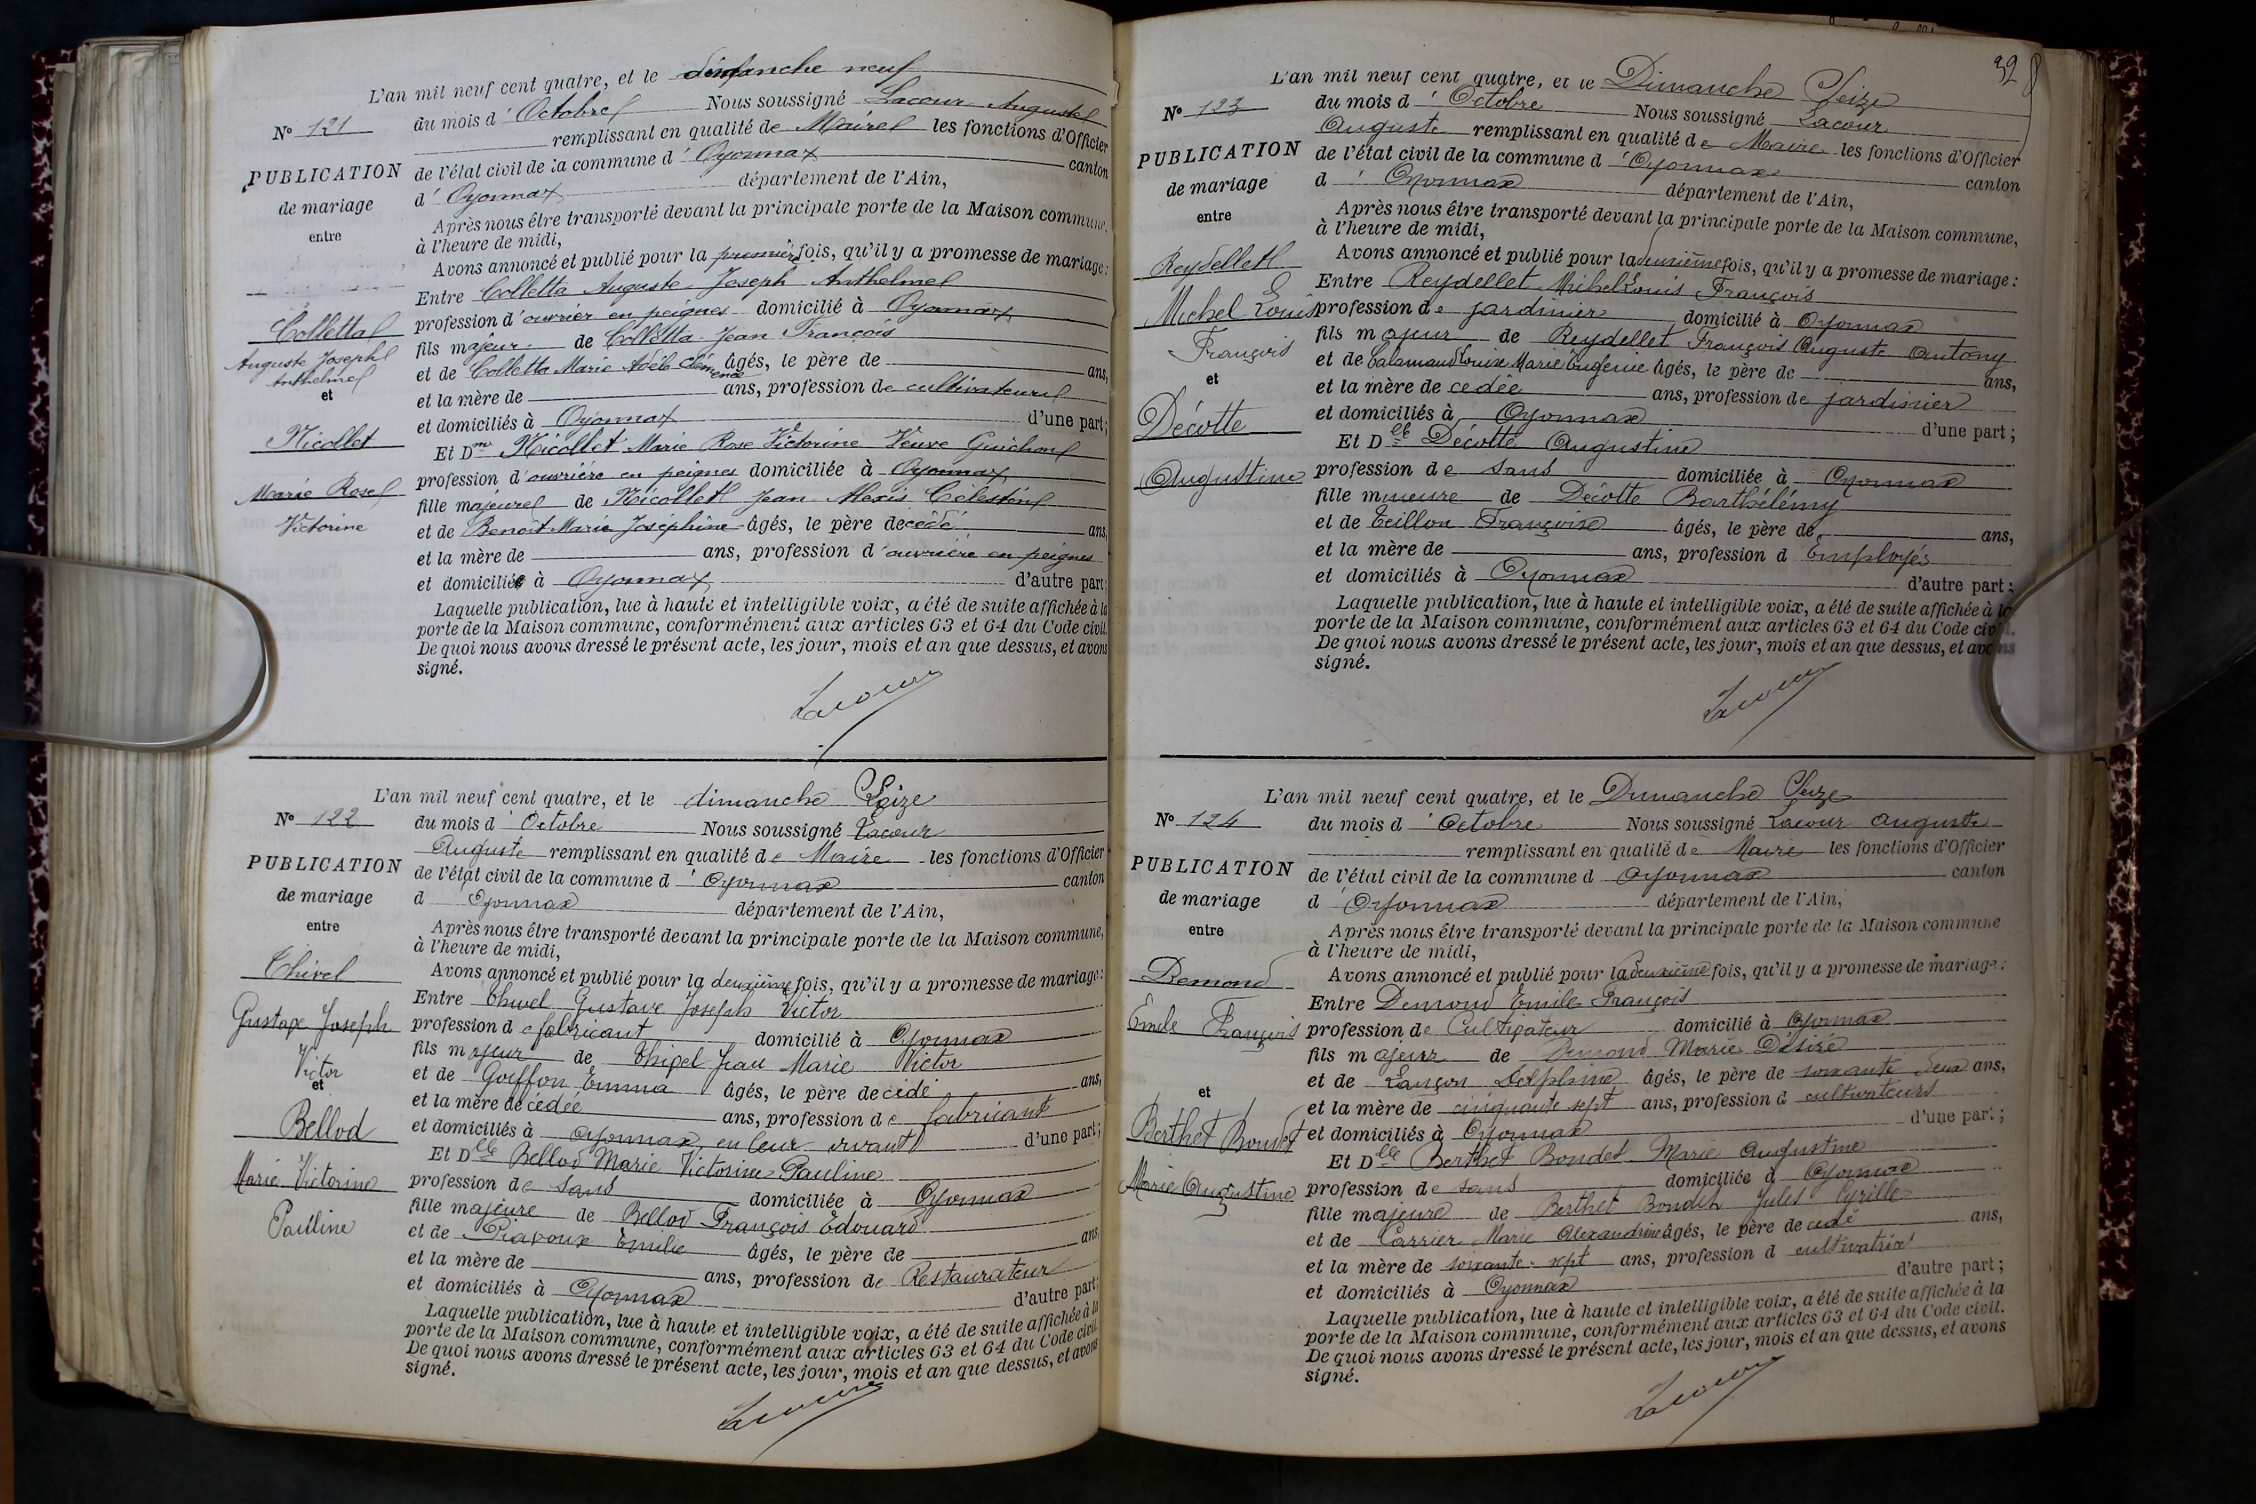 L'an mil neuf cent quatre, et le dimanche neuf
N° 121
du mois d' Octobre Nous soussigné Lacour Auguste
remplissant en qualité de Maire les fonctions d'Officier
PUBLICATION
de mariage
entre
de l'état civil de la commune d' Oyonnax canton
d' Oyonnax département de l'Ain,
Après nous être transporté devant la principale porte de la Maison commune,
à l'heure de midi,
Avons annoncé et publié pour la première fois, qu'il y a promesse de mariage:
Colletta
Auguste Joseph
Anthelme
et
Nicollet
Marie Rose
Victorine
Entre Colletta Auguste Joseph Anthelme
profession d'ouvrier en peignes domicilié à Oyonnax
fils majeur de Colletta Jean François
et de Colletta Marie Adèle Clémence âgés, le père de ans,
et la mère de ans, profession de cultivateurs
et domiciliés à Oyonnax d'une part;
Et Dme Nicollet Marie Rose Victorine Veuve Guichon
profession d'ouvrière en peignes domiciliée à Oyonnax
fille majeure de Nicollet Jean Alexis Célestin
et de Benoit Marie Joséphine âgés, le père décédé ans,
et la mère de ans, profession d'ouvrière en peignes
et domiciliée à Oyonnax d'autre part;
Laquelle publication, lue à haute et intelligible voix, a été de suite affichée à la
porte de la Maison commune, conformément aux articles 63 et 64 du Code civil.
De quoi nous avons dressé le présent acte, les jour, mois et an que dessus, et avons
signé.
Lacour
L'an mil neuf cent quatre, et le dimanche Seize
N° 122
du mois d' Octobre Nous soussigné Lacour
Auguste remplissant en qualité de Maire les fonctions d'Officier
PUBLICATION
de mariage
entre
de l'état civil de la commune d' Oyonnax canton
d Oyonnax département de l'Ain,
Après nous être transporté devant la principale porte de la Maison commune,
à l'heure de midi,
Avons annoncé et publié pour la deuxième fois, qu'il y a promesse de mariage:
Thivel
Gustave Joseph
Victor
et
Bellod
Marie Victorine
Pauline
Entre Thivel Gustave Joseph Victor
profession de fabricant domicilié à Oyonnax
fils majeur de Thivel Jean Marie Victor
et de Goiffon Emma âgés, le père décédé ans,
et la mère décédée ans, profession de fabricants
et domiciliés à Oyonnax en leur vivant d'une part;
Et Dlle Bellod Marie Victorine Pauline
profession de sans domiciliée à Oyonnax
fille majeure de Bellod François Edouard
et de Piavoux Emilie âgés, le père de ans,
et la mère de ans, profession de Restaurateur
et domiciliés à Oyonnax d'autre part;
Laquelle publication, lue à haute et intelligible voix, a été de suite affichée à la
porte de la Maison commune, conformément aux articles 63 et 64 du Code civil.
De quoi nous avons dressé le présent acte, les jour, mois et an que dessus, et avons
signé.
Lacour
32
L'an mil neuf cent quatre, et le Dimanche Seize
N° 123
du mois d' Octobre Nous soussigné Lacour
Auguste remplissant en qualité de Maire les fonctions d'Officier
PUBLICATION
de mariage
entre
de l'état civil de la commune d' Oyonnax canton
d' Oyonnax département de l'Ain,
Après nous être transporté devant la principale porte de la Maison commune,
à l'heure de midi,
Avons annoncé et publié pour la deuxième fois, qu'il y a promesse de mariage:
Reydellet
Michel Louis
François
et
Décotte
Augustine
Entre Reydellet Michel Louis François
profession de jardinier domicilié à Oyonnax
fils majeur de Reydellet François Auguste Antony
et de Calamand Louise Marie Eugénie âgés, le père de ans,
et la mère décédée ans, profession de jardinier
et domiciliés à Oyonnax d'une part;
Et Dlle Décotte Augustine
profession de sans domiciliée à Oyonnax
fille mineure de Décotte Barthélémy
et de Teillon Françoise âgés, le père de ans,
et la mère de ans, profession d Employés
et domiciliés à Oyonnax d'autre part;
Laquelle publication, lue à haute et intelligible voix, a été de suite affichée à la
porte de la Maison commune, conformément aux articles 63 et 64 du Code civil.
De quoi nous avons dressé le présent acte, les jour, mois et an que dessus, et avons
signé.
Lacour
L'an mil neuf cent quatre, et le Dimanche Seize
N° 124
du mois d' Octobre Nous soussigné Lacour Auguste
remplissant en qualité de Maire les fonctions d'Officier
PUBLICATION
de mariage
entre
de l'état civil de la commune d Oyonnax canton
d' Oyonnax département de l'Ain,
Après nous être transporté devant la principale porte de la Maison commune
à l'heure de midi,
Avons annoncé et publié pour la deuxième fois, qu'il y a promesse de mariage:
Demond
Emile François
et
Berthet Bondet
Marie Augustine
Entre Demond Emile François
profession de Cultivateur domicilié à Oyonnax
fils majeur de Demond Marie Désiré
et de Lançon Delphine âgés, le père de soixante deux ans,
et la mère de cinquante sept ans, profession d cultivateurs
et domiciliés à Oyonnax d'une part;
Et Dlle Berthet Bondet Marie Augustine
profession de sans domiciliée à Oyonnax
fille majeure de Berthet Bondet Jules Cyrille
et de Carrier Marie Alexandrine âgés, le père décédé ans,
et la mère de soixante-sept ans, profession d cultivatrice
et domiciliés à Oyonnax d'autre part;
Laquelle publication, lue à haute et intelligible voix, a été de suite affichée à la
porte de la Maison commune, conformément aux articles 63 et 64 du Code civil.
De quoi nous avons dressé le présent acte, les jour, mois et an que dessus, et avons
signé.
Lacour